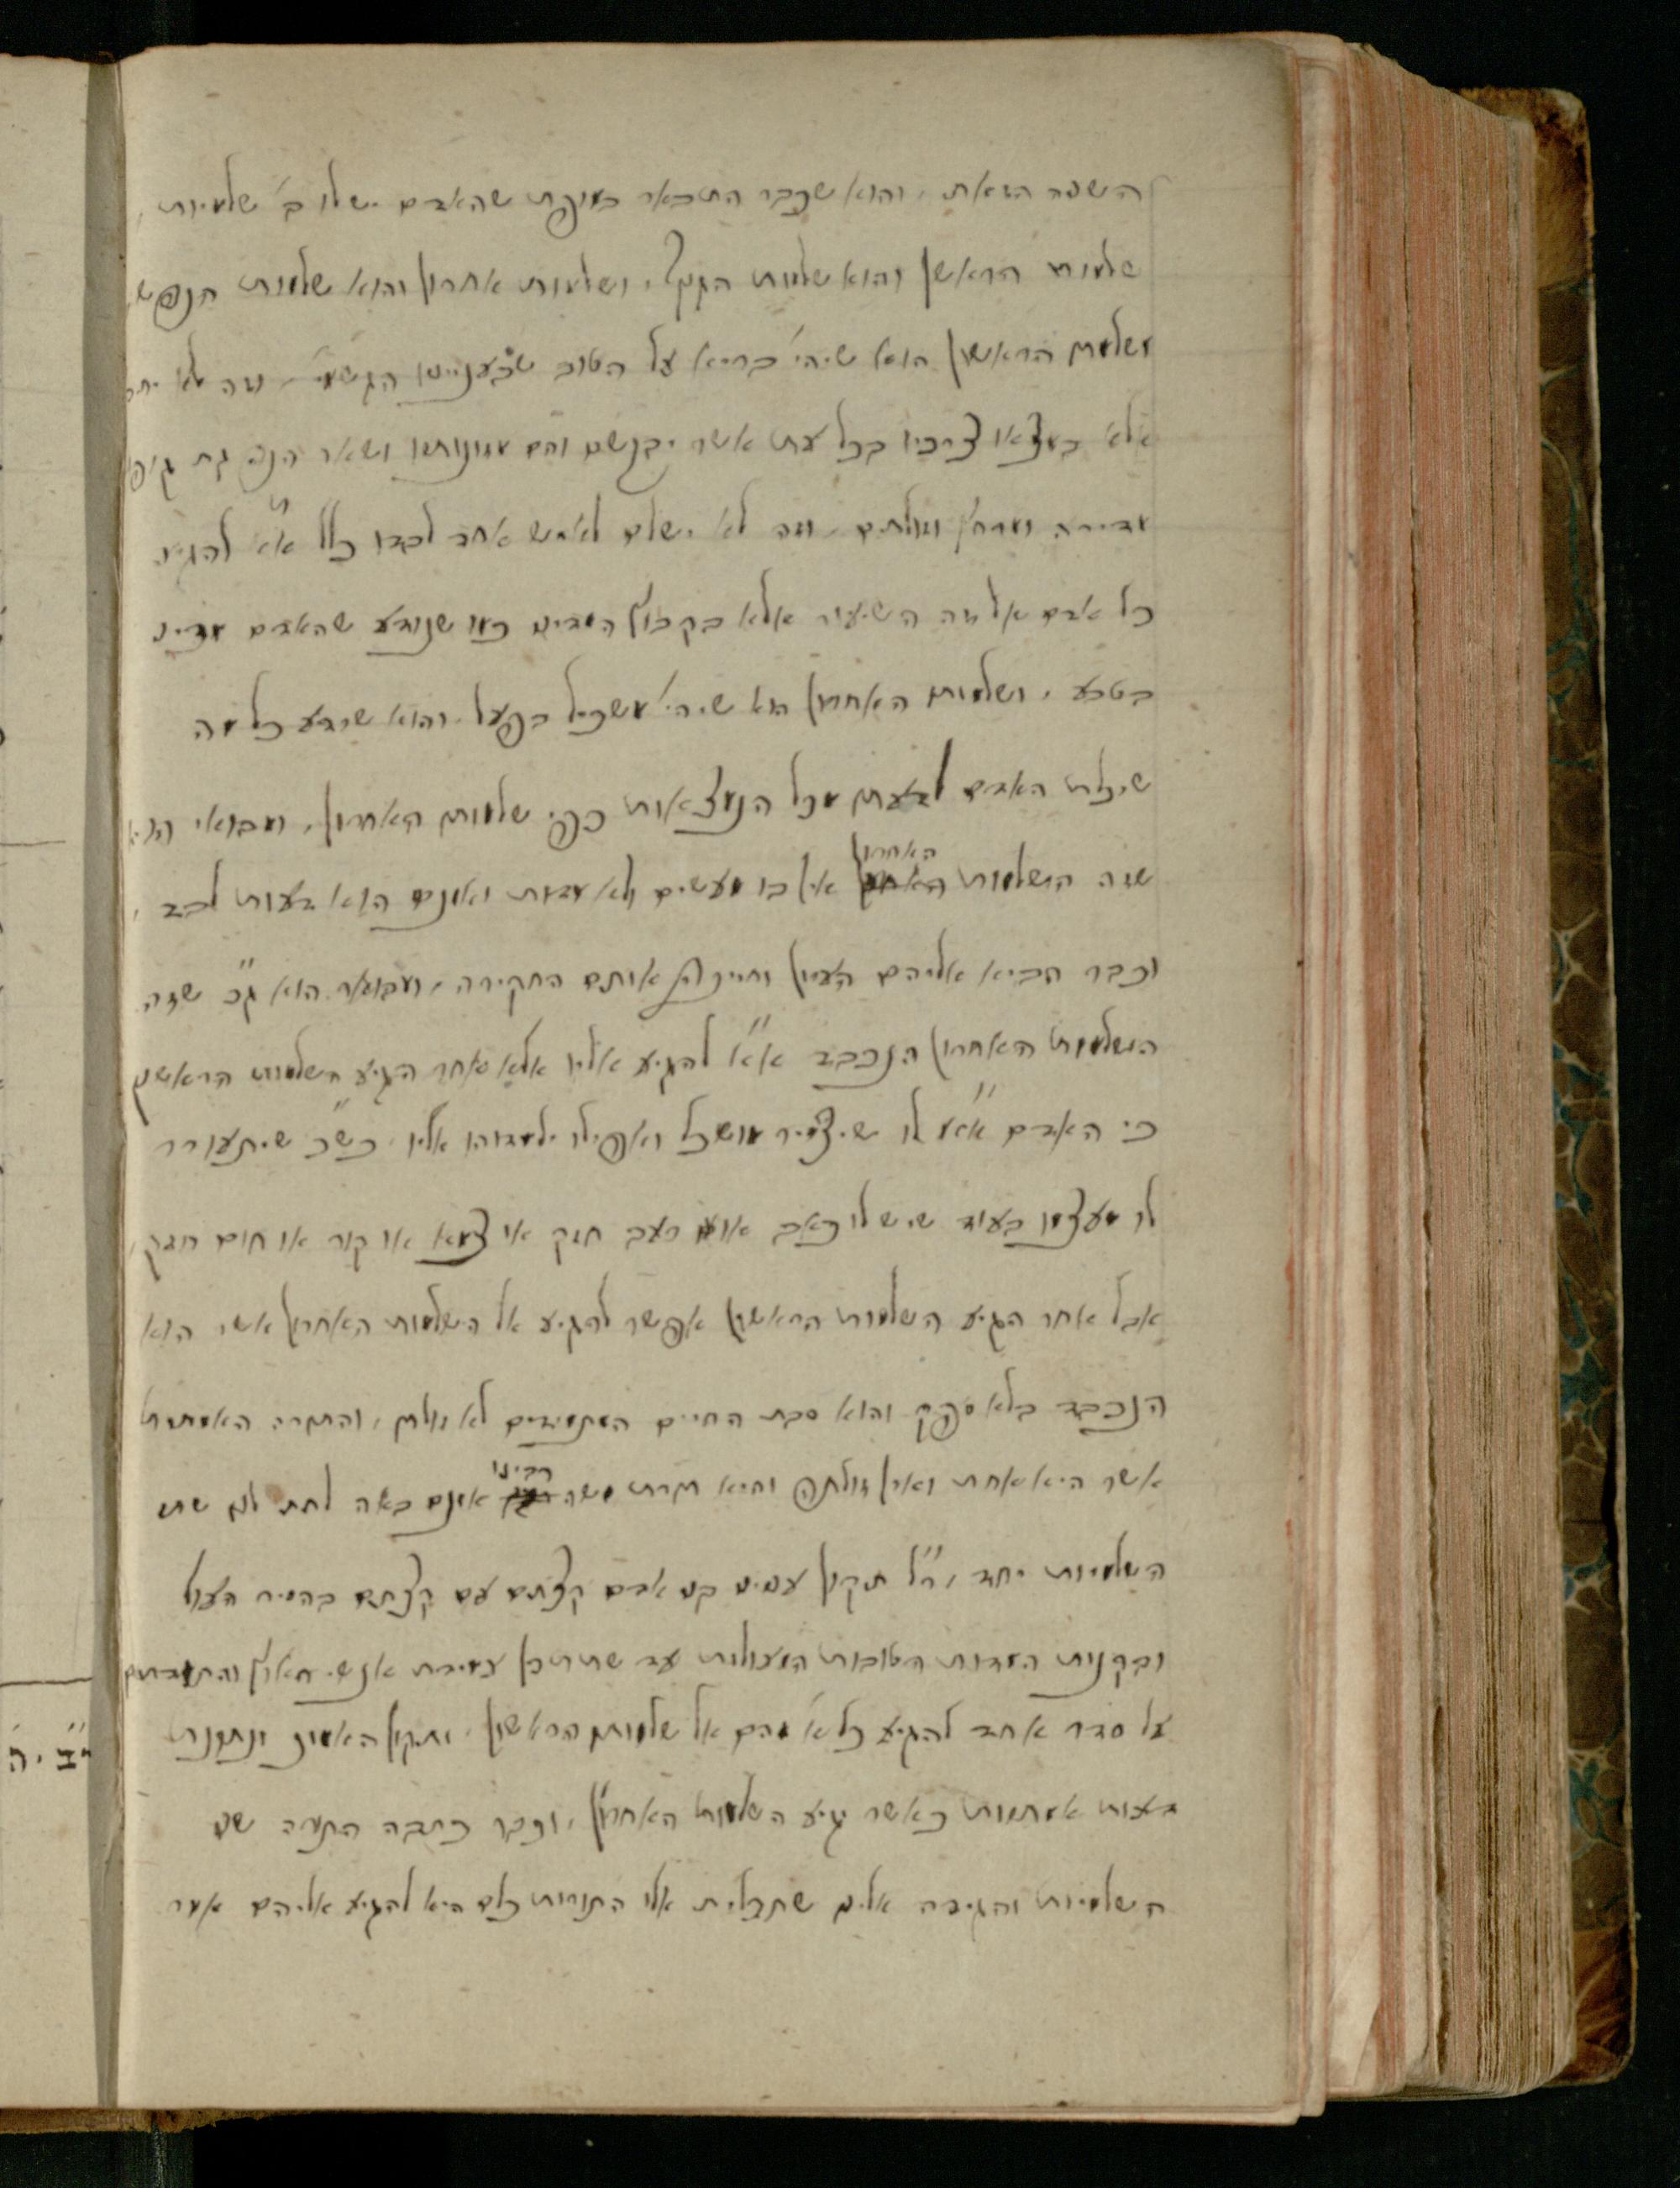 השמה הזאת, והוא שכבר התבאר במופת שהאדם יש לו ב' שלמיות,
שלמות הראשון והוא שלמות הגוף, ושלמות אחרון והוא שלמות הנפש,
ושלמותו הראשון הוא שיהי' בריא על הטוב שבעניניו הגשמי', וזה לא
אלא במצאו צרכיו בכל עת אשר יבקשם והם מזונותיו ושאר הנהגת גופו
מדירה ומרחץ וזולתם, וזה לא ישלם לאיש אחד לבדו כלל וא"א להגיע
כל אדם אל זה השיעור אלא בקבוץ המדיני כמו שנודע שהאדם מדיני
בטבע, ושלמותו האחרון הוא שיהי' משכיל בפעל, והוא שידע כל מה
שיכלת האדם לדעתו מכל הנמצאות כפי שלמותו האחרון, ומבואר הוא
שזה השלמות האחרון אין בו מעשים ולא מדות ואמנם הוא דעות לבד,
וכבר הביא אליהם העיון וחייבה אותם החקירה, ומבואר הוא ג"כ שזה
השלמות האחרון הנכבד א"א להגיע אליו אלא אחר הגיע השלמות הראשון
כי האדם א"א לו שיצייר מושכל ואפילו ילמדוהו אליו, כ"ש שיתעורר
לו מעצמו בעוד שיש לו כאב או רעב חזק או צמא או קור או חום חזק,
אבל אחר הגיע השלמות הראשון אפשר להגיע אל השלמות האחרון אשר הוא
הנכבד בלא ספק והוא סבת החיים המתמידים לא זולתו, והתורה האמתית
אשר היא אחת ואין זולתה והיא תורת משה רבינו אמנם באה לתת לנו שתי
השלמיות יחד, ר"ל תקון עניני בני אדם קצתם עם קצתם בהסיר העול
ובקנות המדות הטובות המעולות עד שתתכן עמידת אנשי הארץ והתמדתם
על סדר אחד להגיע כל א' מהם אל שלמותו הראשון, ותקון האמונות ונתינת
דעות אמתיות כאשר יגיע השלמות האחרון, וכבר כתבה התורה שני
השלמיות והגידה אלינו שתכלית אלו התורות כלם היא להגיע אליהם אמר